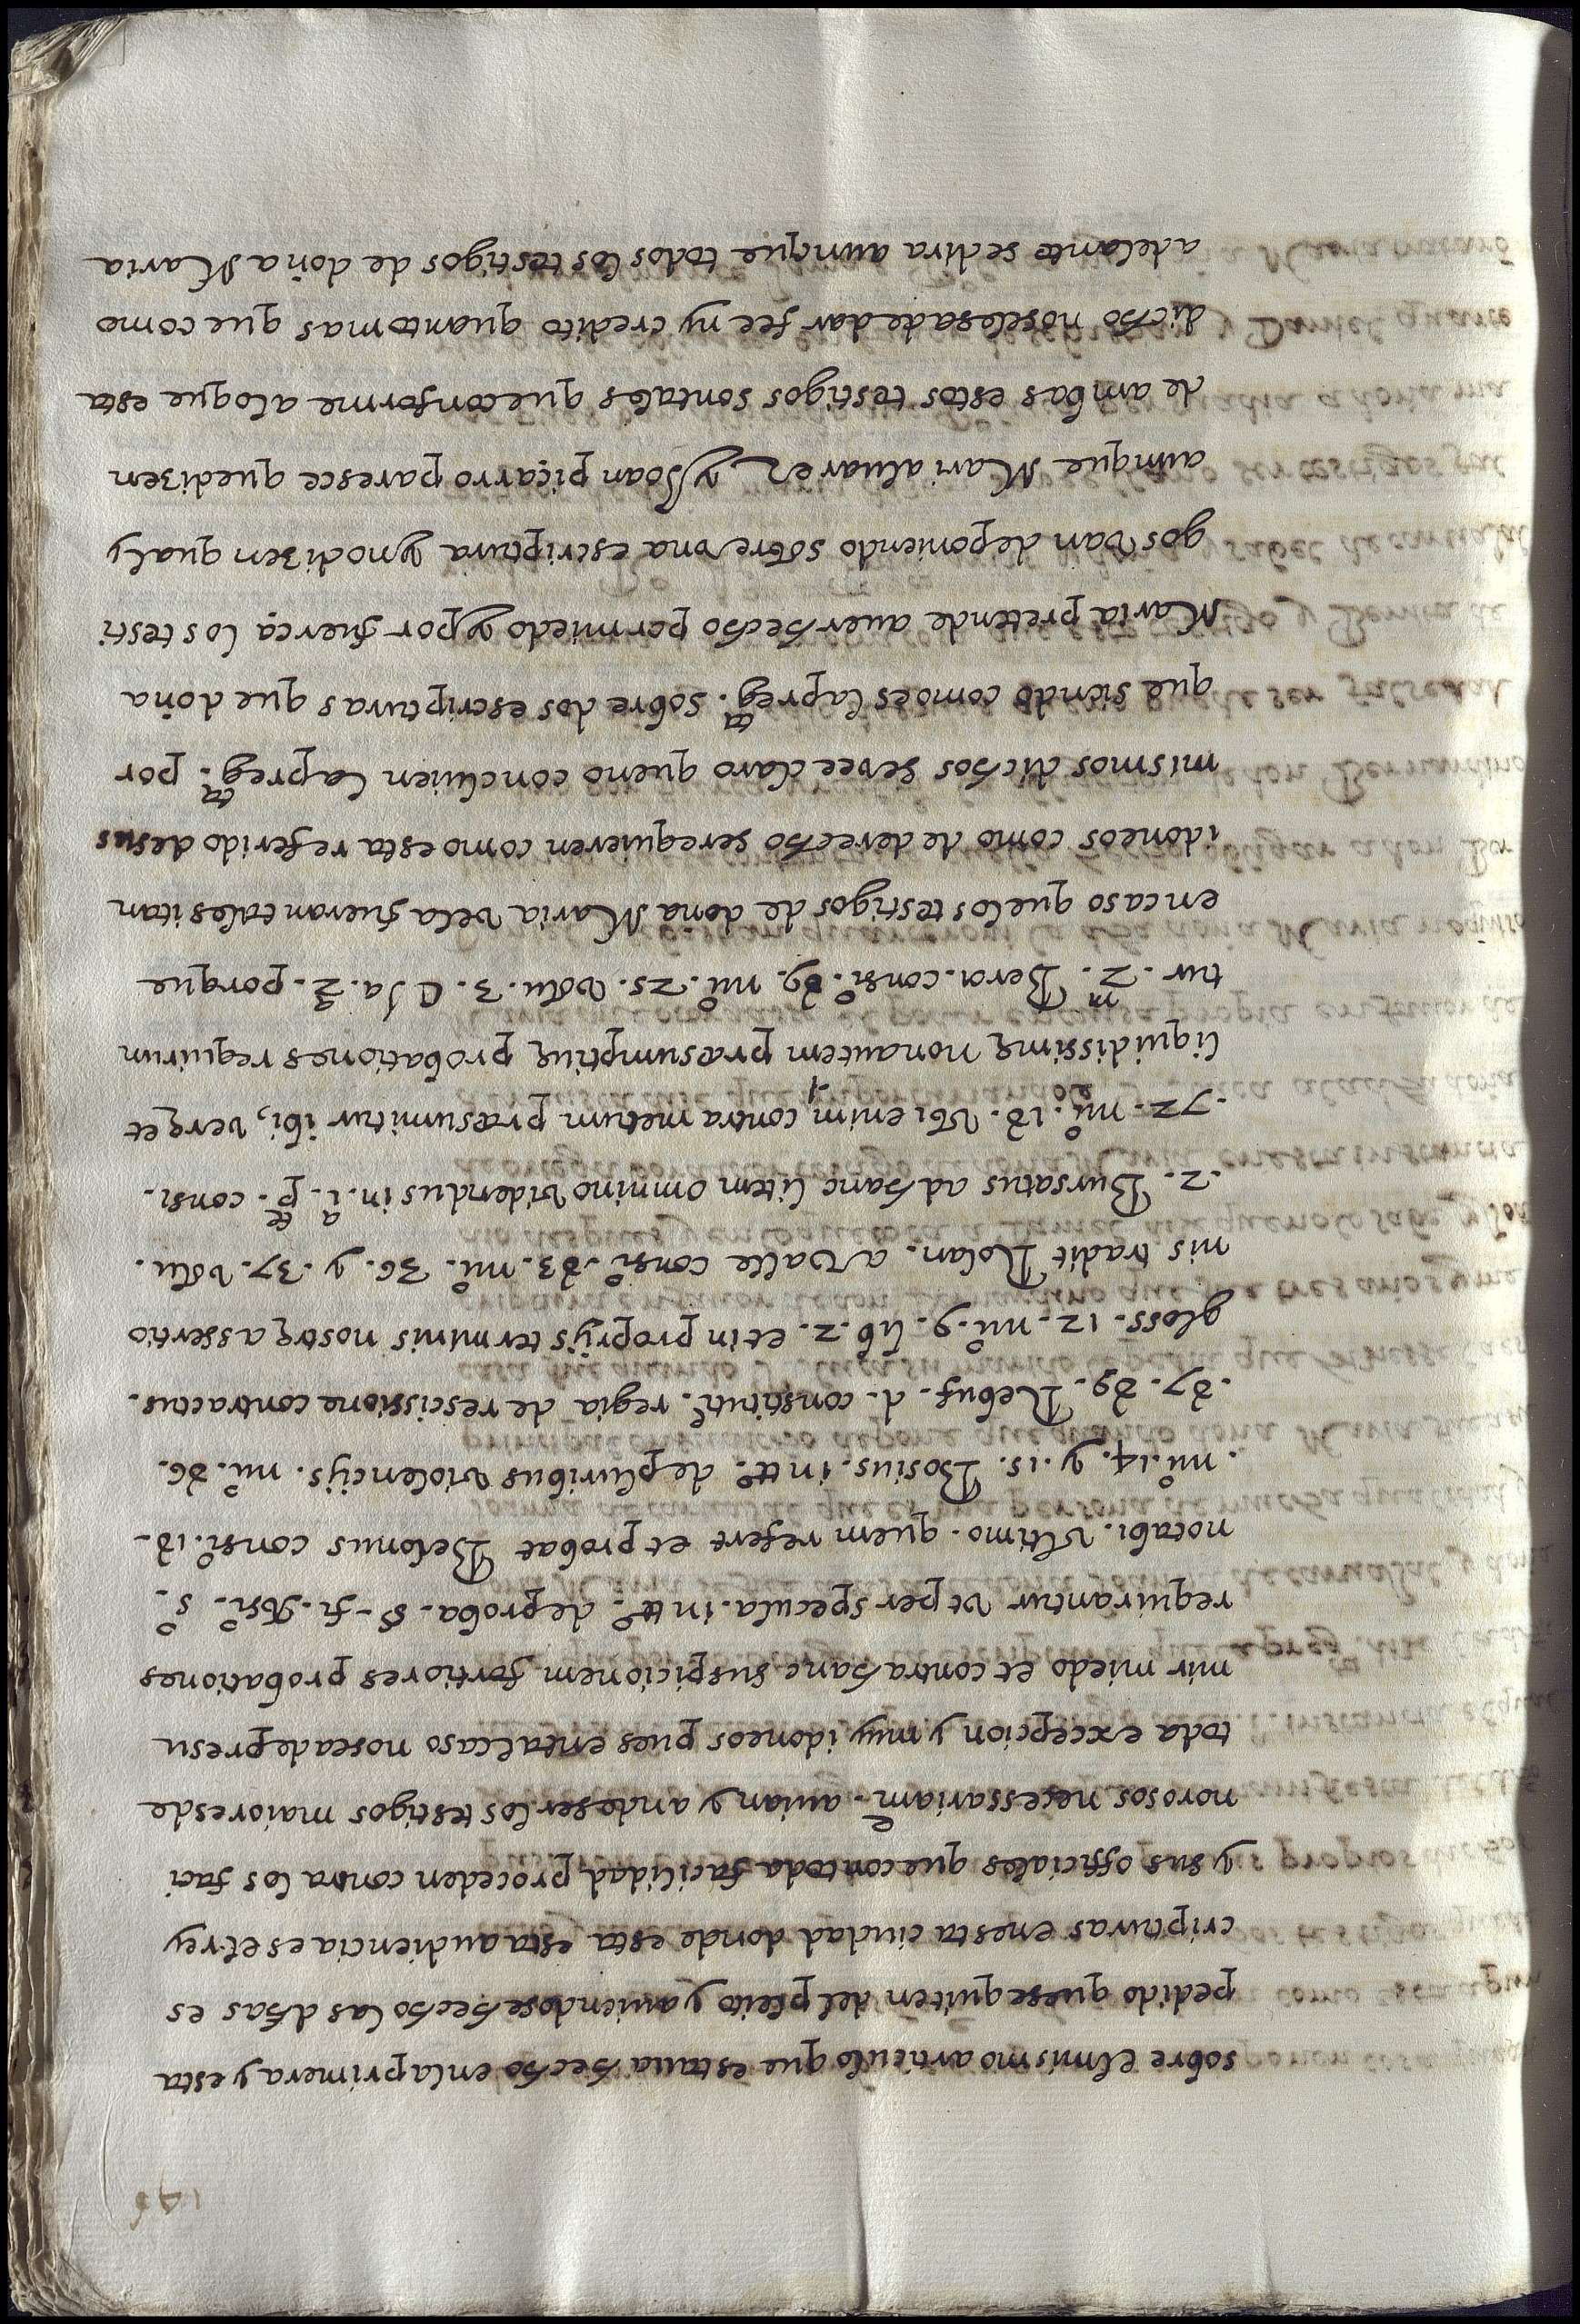 146
sobre el mismo articulo que estaua hecho en la primera y esta
pedido que se quiten del pleito y auiendose hecho las dhas es
cripturas en esta ciudad donde esta esta audiencia es el rey
y sus officiales que con toda facilidad proceden contra los faci
norosos necessariamᵉ. auian y an de ser los testigos maiores de
toda excepcion y muy idoneos pues en tal caso no se a de presu
mir miedo et contra hanc suspicionem fortiores probationes
requirantur vt per specula. in ttº. de proba. §. fi.
notabi. vltimo. quem refert et probat Belonus consiº. 18.
. nuº. 14. y. 15. Bosius. in ttº. de pluribus violencijs. nuº. 86.
. 87. 89. Rebuf. d. constitutᵉ. regia de rescissione contractus.
gloss. 12. nuº. 9. lib. 2. et in proprijs terminis nostrę assertio
nis tradit Rolan. a valle consiº. 83. nuº. 36. y. 37. volu.
. 2. Bursatus ad hanc litem omnino videndus in. 1ª. pᵗᵉ. consi.
. 72. nuº. 18. vbi enim contra metum præsumitur ibi, verę et
liquidissimę non autem præsumptiuę probationes requirun
tur. 2. Beroi. consiº. 89. nuº. 25. volu. 3. porque
en caso que los testigos de dona Maria vela fueran tales i tan
idoneos como de derecho se requieren como esta referido de sus
mismos dichos se vee claro que no concluien la pregᵗᵃ. por
que siendo como es la pregᵗᵃ. sobre dos escripturas que doña
Maria pretende auer hecho por miedo y por fuerça los testi
gos van deponiendo sobre vna escriptura y no dizen qual y
aunque Mari aluarez y Joan piçarro paresce que dizen
de ambas estos testigos son tales que conforme a lo que esta
dicho no se les a de dar fee ny credito quanto mas que como
adelante se dira aunque todos los testigos de doña Maria